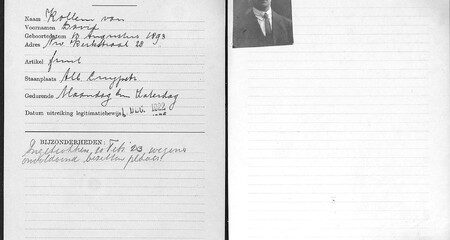 Naam Kollem van
Voornamen David
Geboortedatum 10 Augustus 1893
Adres Nw Kerkstraat 28
Artikel fruit
Staanplaats Alb. Cuypstr.
Gedurende Maandag t/m Zaterdag
Datum uitreiking legitimatiebewijs AUG. 1922
BIJZONDERHEDEN:
Ingetrokken, Feb 23, wegens
onvoldoend bezetten plaats